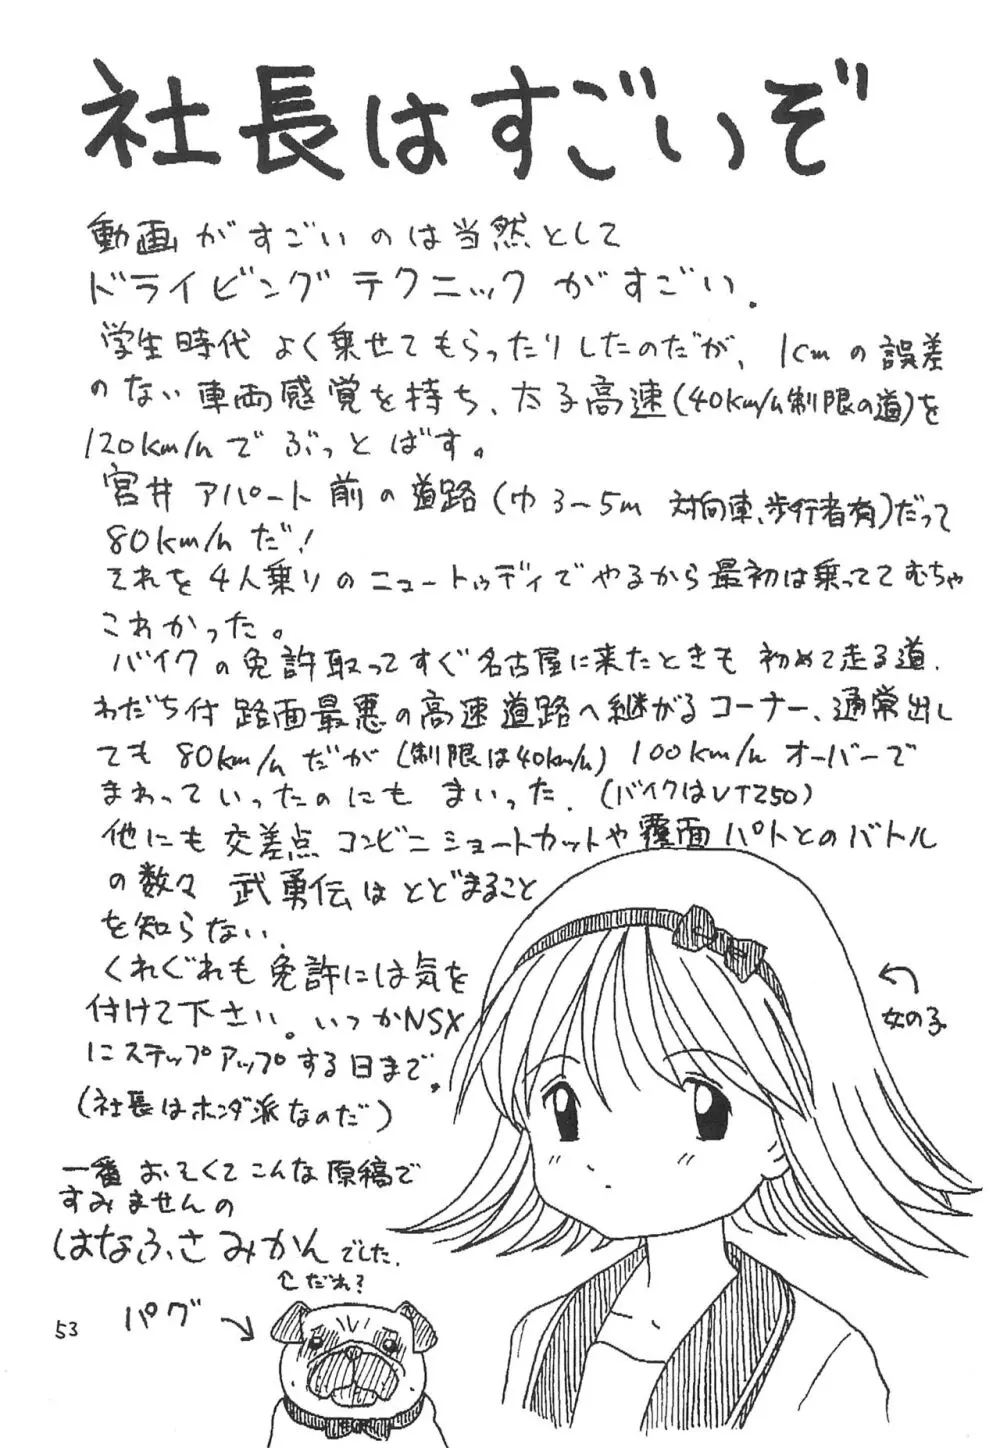 社長はすごいぞ
動画がすごいのは当然として
ドライビングテクニックがすごい.
学生時代よく乗せてもらったりしたのだが、1cmの誤差
のない車両感覚を持ち、太子高速(40km/h制限の道)を
120km/hでぶっとばす。
宮井アパート前の道路(巾3〜5m 対向車、歩行者有)だって
80km/hだ!
それを4人乗りのニュートゥデイでやるから最初は乗っててむちゃ
こわかった。
バイクの免許取ってすぐ名古屋に来たときも初めて走る道.
わだち付路面最悪の高速道路へ継がるコーナー、通常出し
ても80km/hだが(制限は40km/h) 100km/hオーバーで
まわっていったのにもまいった.(バイクはVTZ50)
他にも交差点コンビニショートカットや覆面パトとのバトル
の数々武勇伝はとどまること
を知らない.
くれぐれも免許には気を
付けて下さい。いつかNSX
にステップアップする日まで.
(社長はホンダ派なのだ)
女の子
一番おそくてこんな原稿で
すみませんの
はなふさみかんでした.
だれ?
パグ
53